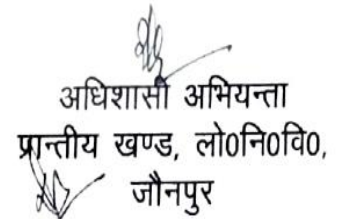 अधिशासी अभियन्ता
प्रान्तीय खण्ड, लो0नि0वि0,
जौनपुर